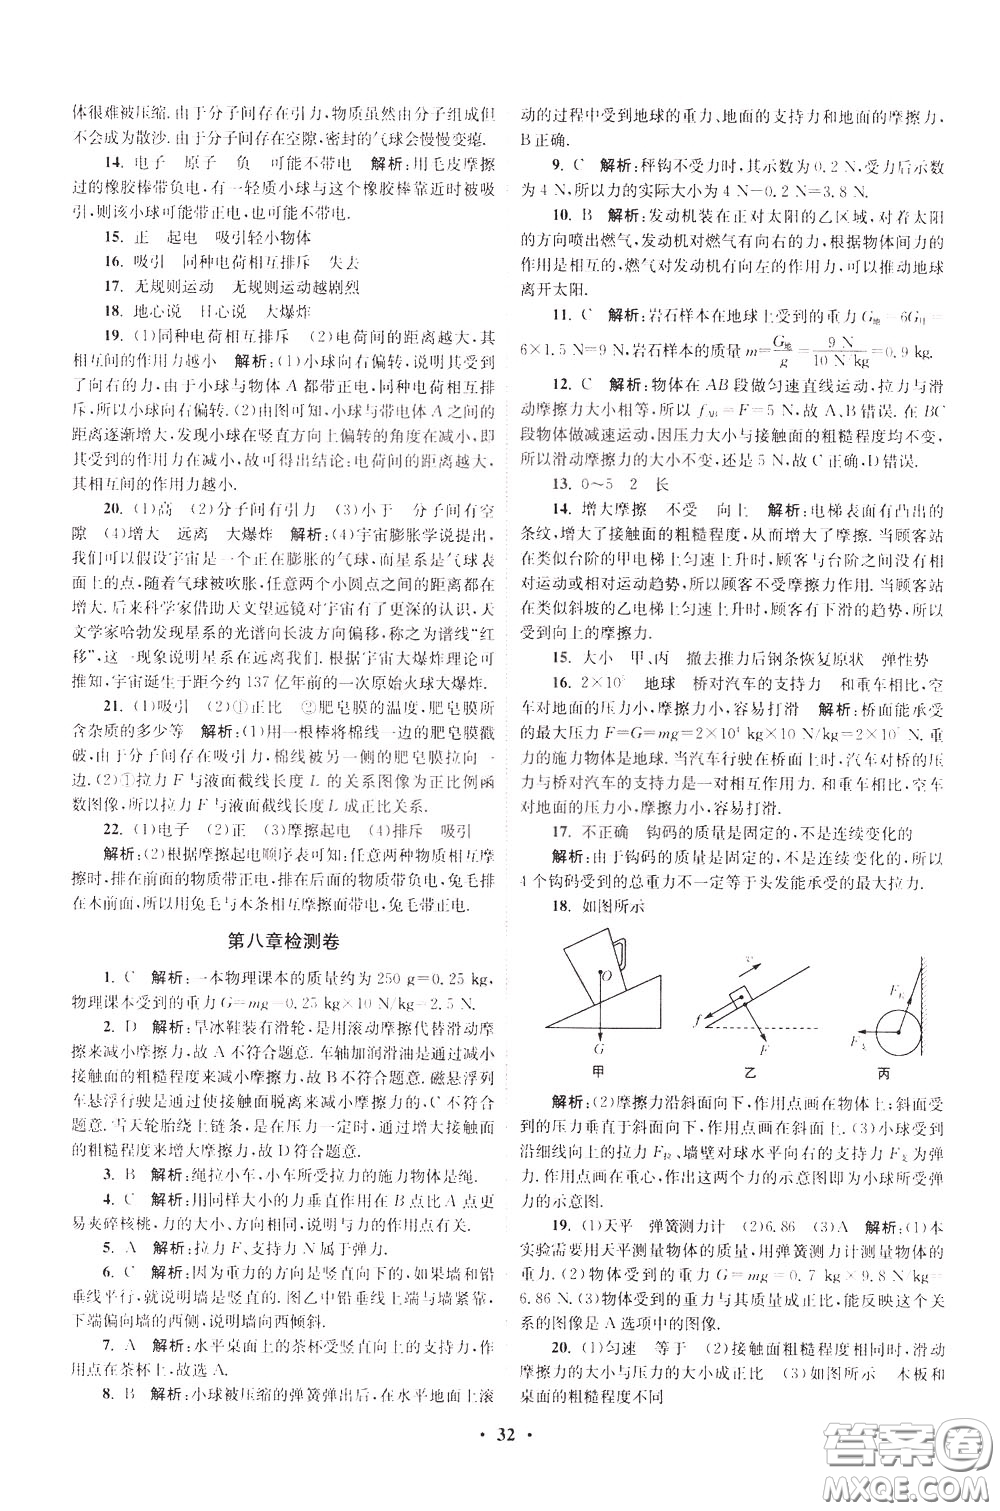 体很难被压缩.由于分子间存在引力,物质虽然由分子组成但
不会成为散沙.由于分子间存在空隙,密封的气球会慢慢变瘪.
14. 电子 原子 负 可能不带电 解析:用毛皮摩擦
过的橡胶棒带负电,有一轻质小球与这个橡胶棒靠近时被吸
引,则该小球可能带正电,也可能不带电.
15. 正 起电 吸引轻小物体
16. 吸引 同种电荷相互排斥 失去
17. 无规则运动 无规则运动越剧烈
18. 地心说 日心说 大爆炸
19. (1)同种电荷相互排斥 (2)电荷间的距离越大,其
相互间的作用力越小 解析:(1)小球向右偏转,说明其受到
了向右的力,由于小球与物体 A 都带正电,同种电荷相互排
斥,所以小球向右偏转.(2)由图可知,小球与带电体 A 之间的
距离逐渐增大,发现小球在竖直方向上偏转的角度在减小,即
其受到的作用力在减小,故可得出结论:电荷间的距离越大,
其相互间的作用力越小.
20. (1)高 (2)分子间有引力 (3)小于 分子间有空
隙 (4)增大 远离 大爆炸 解析:(4)宇宙膨胀学说提出,
我们可以假设宇宙是一个正在膨胀的气球,而星系是气球表
面上的点,随着气球被吹胀,任意两个小圆点之间的距离都在
增大.后来科学家借助天文望远镜对宇宙有了更深的认识,天
文学家哈勃发现星系的光谱向长波方向偏移,称之为谱线“红
移”,这一现象说明星系在远离我们.根据宇宙大爆炸理论可
推知,宇宙诞生于距今约 137 亿年前的一次原始火球大爆炸.
21. (1)吸引 (2)①正比 ②肥皂膜的温度,肥皂膜所
含杂质的多少等 解析:(1)用一根棒将棉线一侧的肥皂膜戳
破,由于分子间存在吸引力,棉线被另一侧的肥皂膜拉向一
边.(2)①拉力 F 与液面截线长度 L 的关系图像为正比例函
数图像,所以拉力 F 与液面截线长度 L 成正比关系.
22. (1)电子 (2)正 (3)摩擦起电 (4)排斥 吸引
解析:(2)根据摩擦起电顺序表可知:任意两种物质相互摩
擦时,排在前面的物质带正电,排在后面的物质带负电,兔毛排
在木前面,所以用兔毛与木条相互摩擦而带电,兔毛带正电.
第八章检测卷
1. C 解析:一本物理课本的质量约为 250 g=0.25 kg,
物理课本受到的重力 G=mg=0.25 kg×10 N/kg=2.5 N.
2. D 解析:旱冰鞋装有滑轮,是用滚动摩擦代替滑动摩
擦来减小摩擦力,故 A 不符合题意.车轴加润滑油是通过减小
接触面的粗糙程度来减小摩擦力,故 B 不符合题意.磁悬浮列
车悬浮行驶是通过使接触面脱离来减小摩擦力的,C 不符合题
意.雪天轮胎绕上链条,是在压力一定时,通过增大接触面
的粗糙程度来增大摩擦力,故 D 符合题意.
3. B 解析:绳拉小车,小车所受拉力的施力物体是绳.
4. C 解析:用同样大小的力垂直作用在 B 点比 A 点更
易夹碎核桃,力的大小、方向相同,说明与力的作用点有关.
5. A 解析:拉力 F、支持力 N 属于弹力.
6. C 解析:因为重力的方向是竖直向下的,如果墙和铅
垂线平行,就说明墙是竖直的.图乙中铅垂线上端与墙紧靠,
下端偏向墙的西侧,说明墙向西倾斜.
7. A 解析:水平桌面上的茶杯受竖直向上的支持力,作
用点在茶杯上,故选 A.
8. B 解析:小球被压缩的弹簧弹出后,在水平地面上滚
动的过程中受到地球的重力、地面的支持力和地面的摩擦力,
B 正确.
9. C 解析:秤钩不受力时,其示数为 0.2 N,受力后示数
为 4 N,所以力的实际大小为 4 N−0.2 N=3.8 N.
10. B 解析:发动机装在正对太阳的乙区域,对着太阳
的方向喷出燃气,发动机对燃气有向右的力,根据物体间力的
作用是相互的,燃气对发动机有向左的作用力,可以推动地球
离开太阳.
11. C 解析:岩石样本在地球上受到的重力 G地=6G月=
6×1.5 N=9 N,岩石样本的质量 m=G地/g=9 N/10 N/kg=0.9 kg.
12. C 解析:物体在 AB 段做匀速直线运动,拉力与滑
动摩擦力大小相等,所以 fAB=F=5 N,故 A、B 错误.在 BC
段物体做减速运动,因压力大小与接触面的粗糙程度均不变,
所以滑动摩擦力的大小不变,还是 5 N,故 C 正确,D 错误.
13. 0~5 2 长
14. 增大摩擦 不受 向上 解析:电梯表面有凸出的
条纹,增大了接触面的粗糙程度,从而增大了摩擦.当顾客站
在类似台阶的甲电梯上匀速上升时,顾客与台阶之间没有相
对运动或相对运动趋势,所以顾客不受摩擦力作用.当顾客站
在类似斜坡的乙电梯上匀速上升时,顾客有下滑的趋势,所以
受到向上的摩擦力.
15. 大小 甲、丙 撤去推力后钢条恢复原状 弹性势
16. 2×10 地球 桥对汽车的支持力 和重车相比,空
车对地面的压力小,摩擦力小,容易打滑 解析:桥面能承受
的最大压力 F=G=mg=2×10 kg×10 N/kg=2×10 N.
重力的施力物体是地球.当汽车行驶在桥面时,汽车对桥的压
力与桥对汽车的支持力是一对相互作用力.和重车相比,空车
对地面的压力小,摩擦力小,容易打滑.
17. 不正确 钩码的质量是固定的,不是连续变化的
解析:由于钩码的质量是固定的,不是连续变化的,所以
4 个钩码受到的总重力不一定等于头发能承受的最大拉力.
18. 如图所示
O
G
甲
v
f
F
乙
F拉
F支
丙
解析:(2)摩擦力沿斜面向下,作用点画在物体上;斜面受
到的压力垂直于斜面向下,作用点画在斜面上.(3)小球受到
沿细线向上的拉力 F拉、墙壁对球水平向右的支持力 F支的作
用,作用点画在重心,作出这两个力的示意图即为小球所受弹
力的示意图.
19. (1)天平 弹簧测力计 (2)6.86 (3)A 解析:(1)本
实验需要用天平测量物体的质量,用弹簧测力计测量物体的
重力.(2)物体受到的重力 G=mg=0.7 kg×9.8 N/kg=
6.86 N.(3)物体受到的重力与其质量成正比,能反映这个关
系的图像是 A 选项中的图像.
20. (1)匀速 等于 (2)接触面粗糙程度相同时,滑动
摩擦力的大小与压力的大小成正比 (3)如图所示 木板和
桌面的粗糙程度不同
• 32 •
答案圈
MXQE.COM